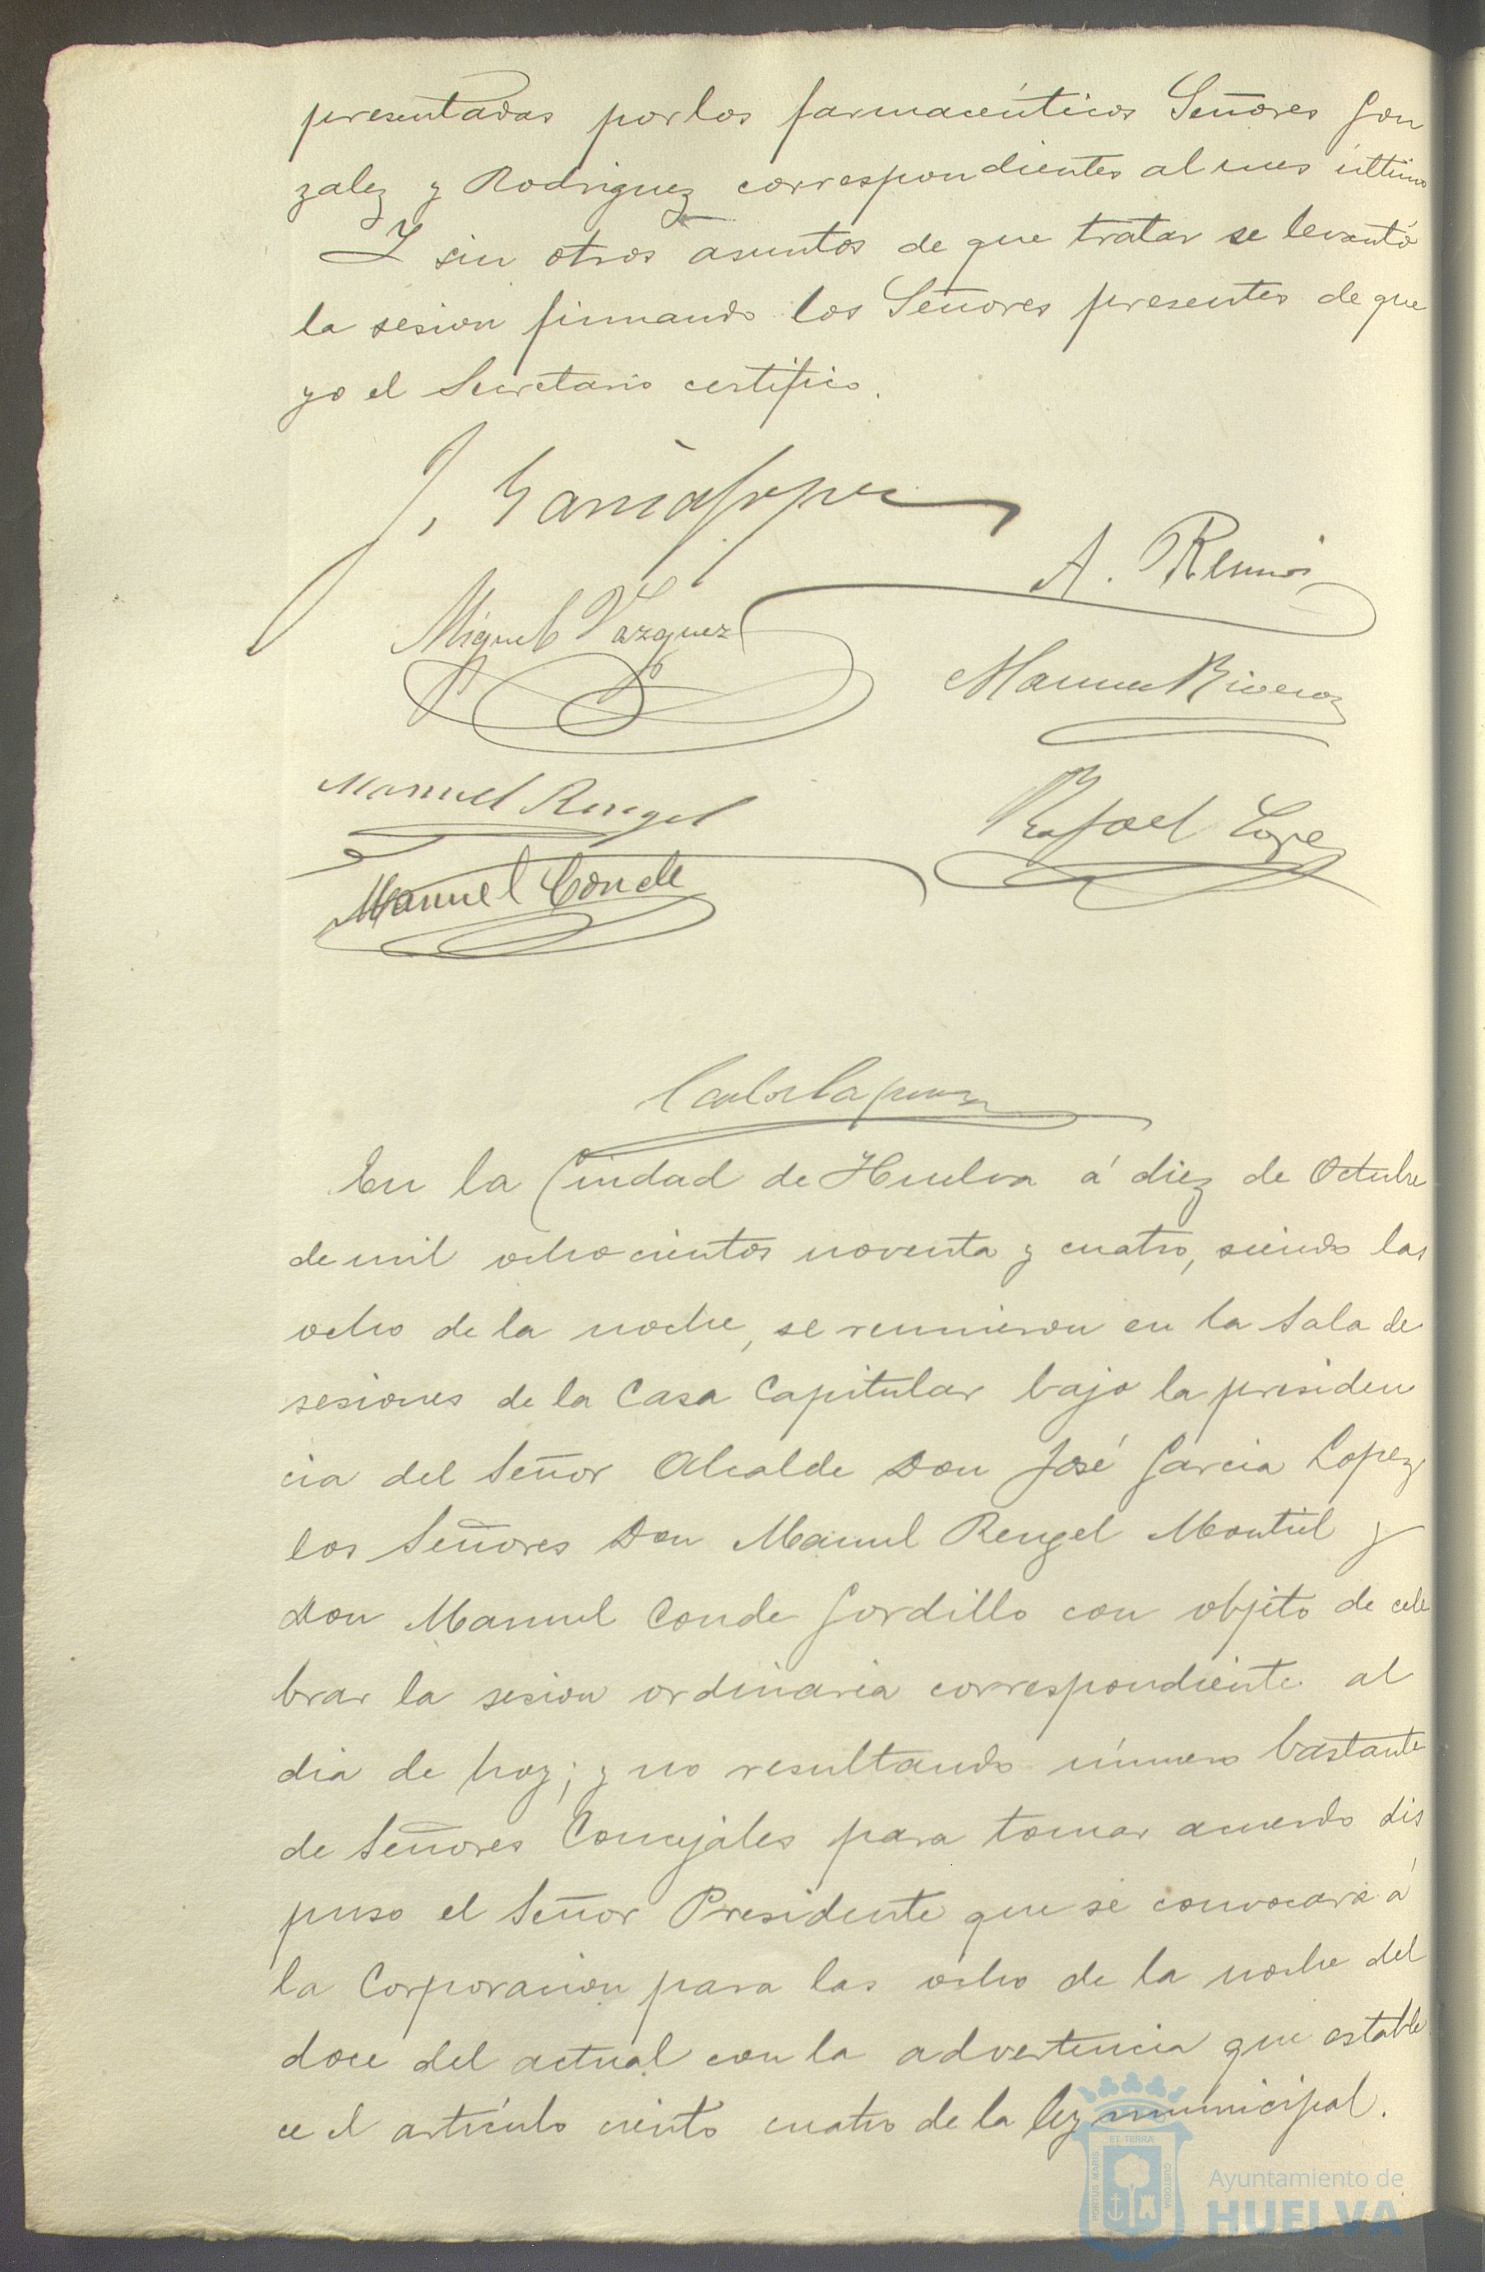 presentadas por los farmaceúticos Señores Gon
zalez y Rodriguez correspondientes al mes último
Y sin otros asuntos de que tratar se levantó
la sesion firmando los Señores presentes de que
yo el Secretario certifico.
J. Garcia Lopez
A. Ramos
Miguel Vazquez
Manuel Riveroz
Manuel Rengel
Rafael Lopez
Manuel Conde
En la Ciudad de Huelva á diez de Octubre
de mil ochocientos noventa y cuatro, siendo las
ocho de la noche, se reunieron en la Sala de
sesiones de la Casa Capitular bajo la presiden
cia del Señor Alcalde Don José Garcia Lopez
los Señores Don Manuel Rengel Montiel y
Don Manuel Conde Gordillo con objeto de cele
brar la sesion ordinaria correspondiente al
dia de hoy; y no resultando número bastante
de Señores Concejales para tomar acuerdo dis
puso el Señor Presidente que se convocara á
la Corporacion para las ocho de la noche del
doce del actual con la advertencia que estable
ce el artículo ciento cuatro de la ley municipal.
PORTUS MARIS
ET TERRAE
CUSTODIA
Ayuntamiento de
HUELVA